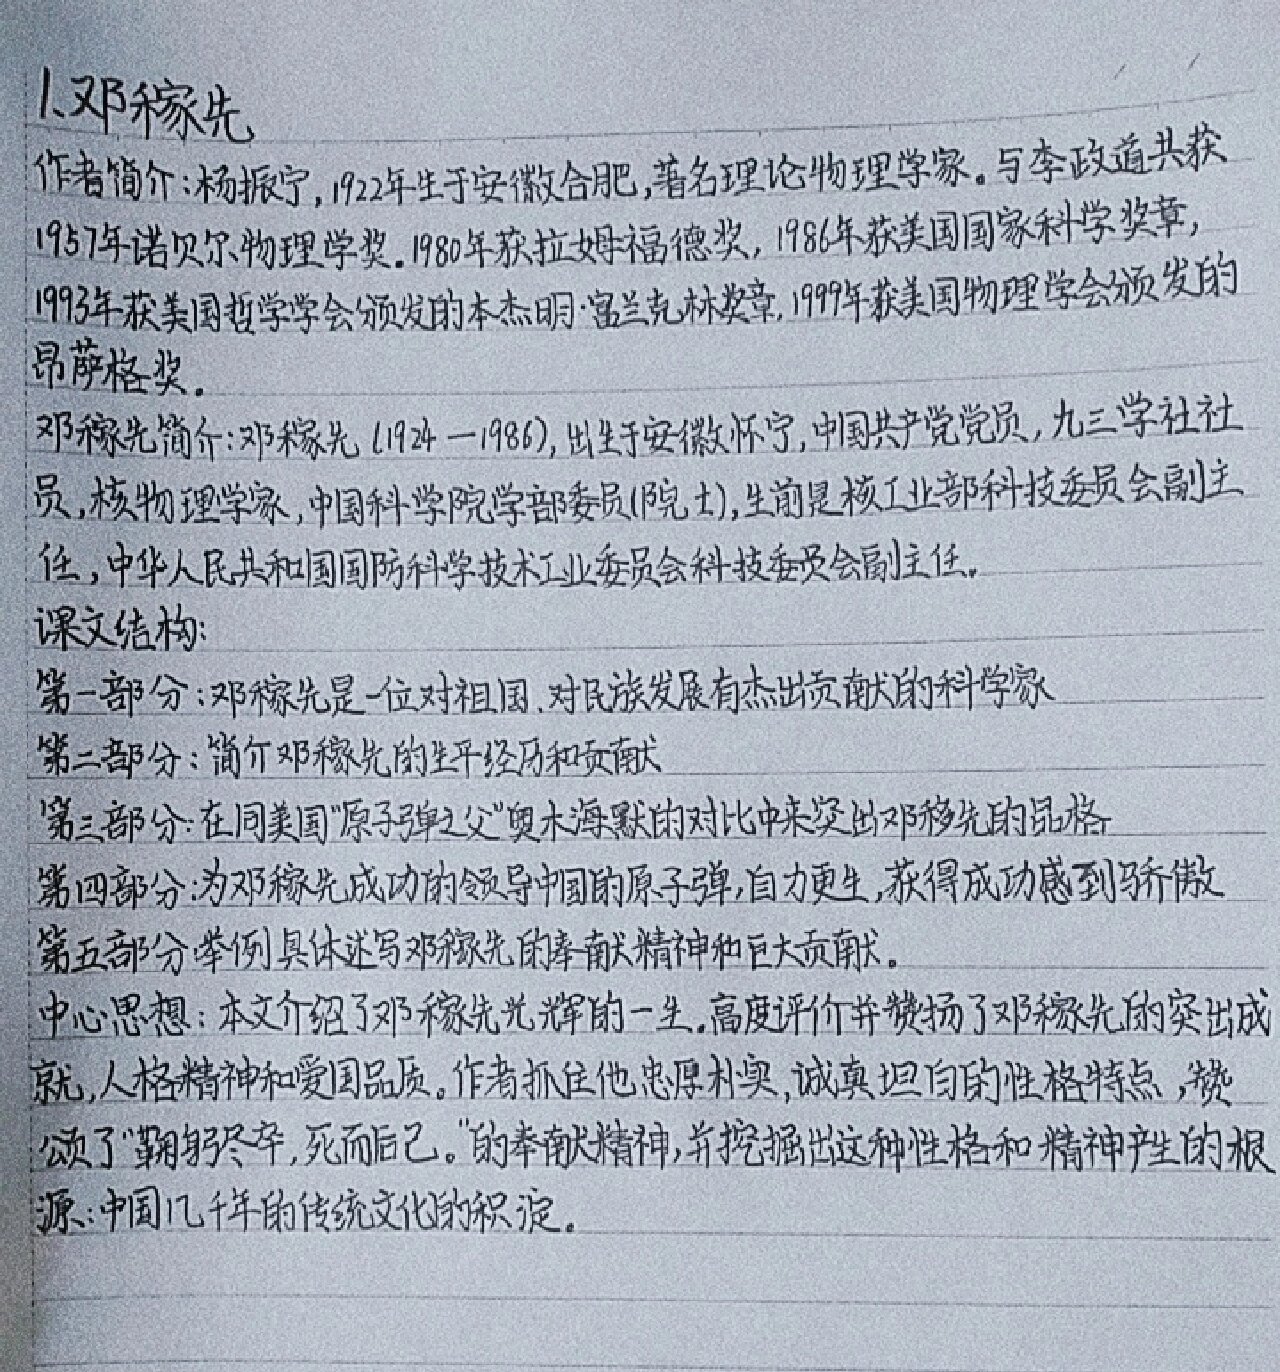 1、邓稼先
作者简介:杨振宁,1922年生于安徽合肥,著名理论物理学家。与李政道共获
1957年诺贝尔物理学奖.1980年获拉姆福德奖,1986年获美国国家科学奖章,
1993年获美国哲学学会颁发的本杰明·富兰克林奖章,1999年获美国物理学会颁发的
昂萨格奖。
邓稼先简介:邓稼先(1924—1986),出生于安徽怀宁,中国共产党党员,九三学社社
员,核物理学家,中国科学院学部委员(院士),生前是核工业部科技委员会副主
任,中华人民共和国国防科学技术工业委员会科技委员会副主任。
课文结构:
第一部分:邓稼先是一位对祖国、对民族发展有杰出贡献的科学家
第二部分:简介邓稼先的生平经历和贡献
第三部分:在同美国"原子弹之父"奥本海默的对比中来突出邓稼先的品格
第四部分:为邓稼先成功的领导中国的原子弹,自力更生,获得成功感到骄傲
第五部分:举例具体述写邓稼先的奉献精神和巨大贡献。
中心思想:本文介绍了邓稼先光辉的一生.高度评价并赞扬了邓稼先的突出成
就,人格精神和爱国品质。作者抓住他忠厚朴实,诚真坦白的性格特点,赞
颂了"鞠躬尽卒,死而后己。"的奉献精神,并挖掘出这种性格和精神产生的根
源:中国几千年的传统文化的积淀。